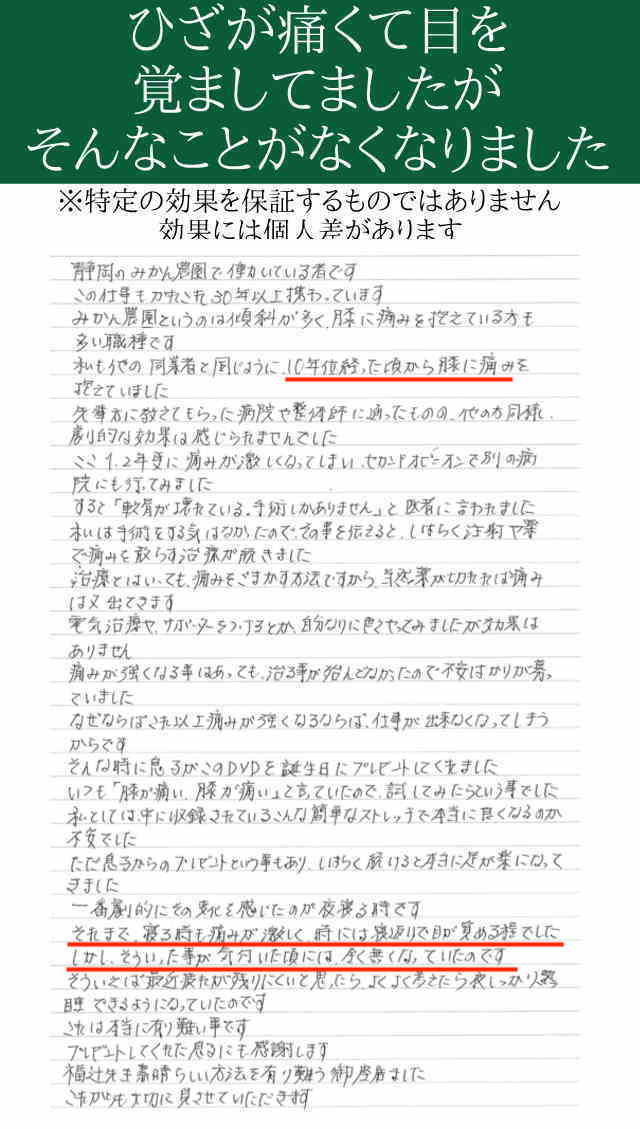 ひざが痛くて目を
覚ましてましたが
そんなことがなくなりました
※特定の効果を保証するものではありません
効果には個人差があります
静岡のみかん農園で働いている者です
この仕事もかれこれ30年以上携わっています
みかん農園というのは傾斜が多く、膝に痛みを抱えている方も
多い職種です
私も他の同業者と同じように、10年位経った頃から膝に痛みを
抱えていました
先輩方に教えてもらった病院や整体師に通ったものの、他の方同様、
劇的な効果は感じられませんでした
ここ1、2年更に痛みが激しくなってしまい、セカンドオピニオンで別の病
院にも行ってみました
すると「軟骨が壊れている。手術しかありません」と医者に言われました
私は手術をする気はなかったので、その事を伝えると、しばらく注射や薬
で痛みを散らす治療が続きました
治療とはいっても、痛みをごまかす方法ですから、当然薬が切れれば痛み
は又出てきます
電気治療や、サポーターをつけるとか、自分なりに色々やってみましたが効果は
ありません
痛みが強くなる事はあっても、治る事が殆んどなかったので不安ばかりが募っ
ていました
なぜならばこれ以上痛みが強くなるならば、仕事が出来なくなってしまう
からです
そんな時に息子がこのDVDを誕生日にプレゼントしてくれました
いつも「膝が痛い、膝が痛い」と言っていたので、試してみたらという事でした
私としては中に収録されているこんな簡単なストレッチで本当に良くなるのか
不安でした
ただ息子からのプレゼントという事もあり、しばらく続けると本当に足が楽になって
きました
一番劇的にその変化を感じたのが夜寝る時です
それまで、寝る時も痛みが激しく、時には寝返りで目が覚める程でした
しかし、そういった事が気付いた頃には、全く無くなっていたのです
そういえば最近疲れが残りにくいと思ったら、よくよく考えたら夜しっかり熟
睡できるようになっていたのです
これは本当に有り難い事です
プレゼントしてくれた息子にも感謝します
福辻先生素晴らしい方法を有り難う御座居ました
これからも大切に見させていただきます